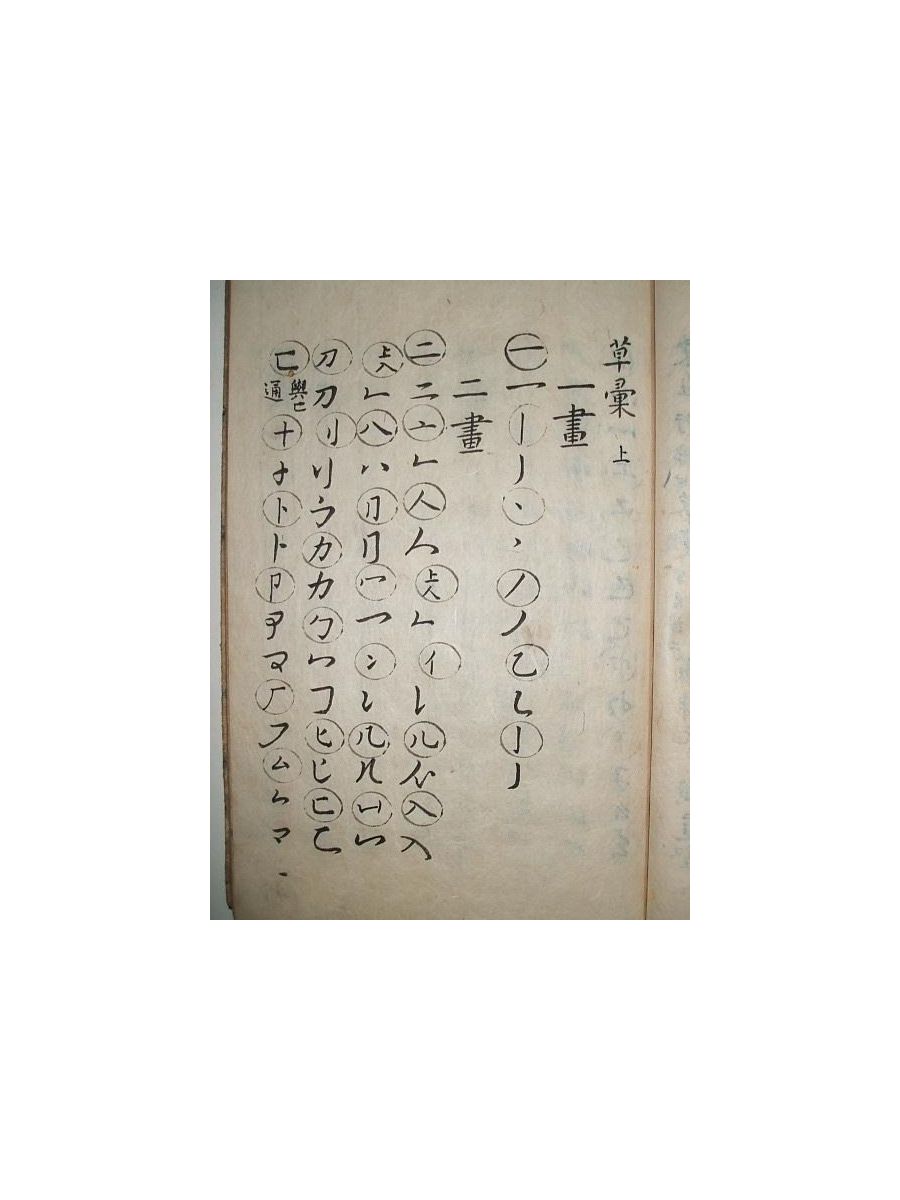 草彙 上
一畫
一 一 丨 丨 丶 丶 丿 丿 乙 乚 亅 亅
二畫
二 二 亠 𠂉 人 人 上人 𠂉 亻 儿 入 入
上入 𠂉 八 八 冂 冂 冖 冖 冫 冫 几 几 凵
刀 刀 刂 刂 力 力 勹 匕 匕 匚
匸 與匚通 十 卜 卜 卩 厂 厶 マ